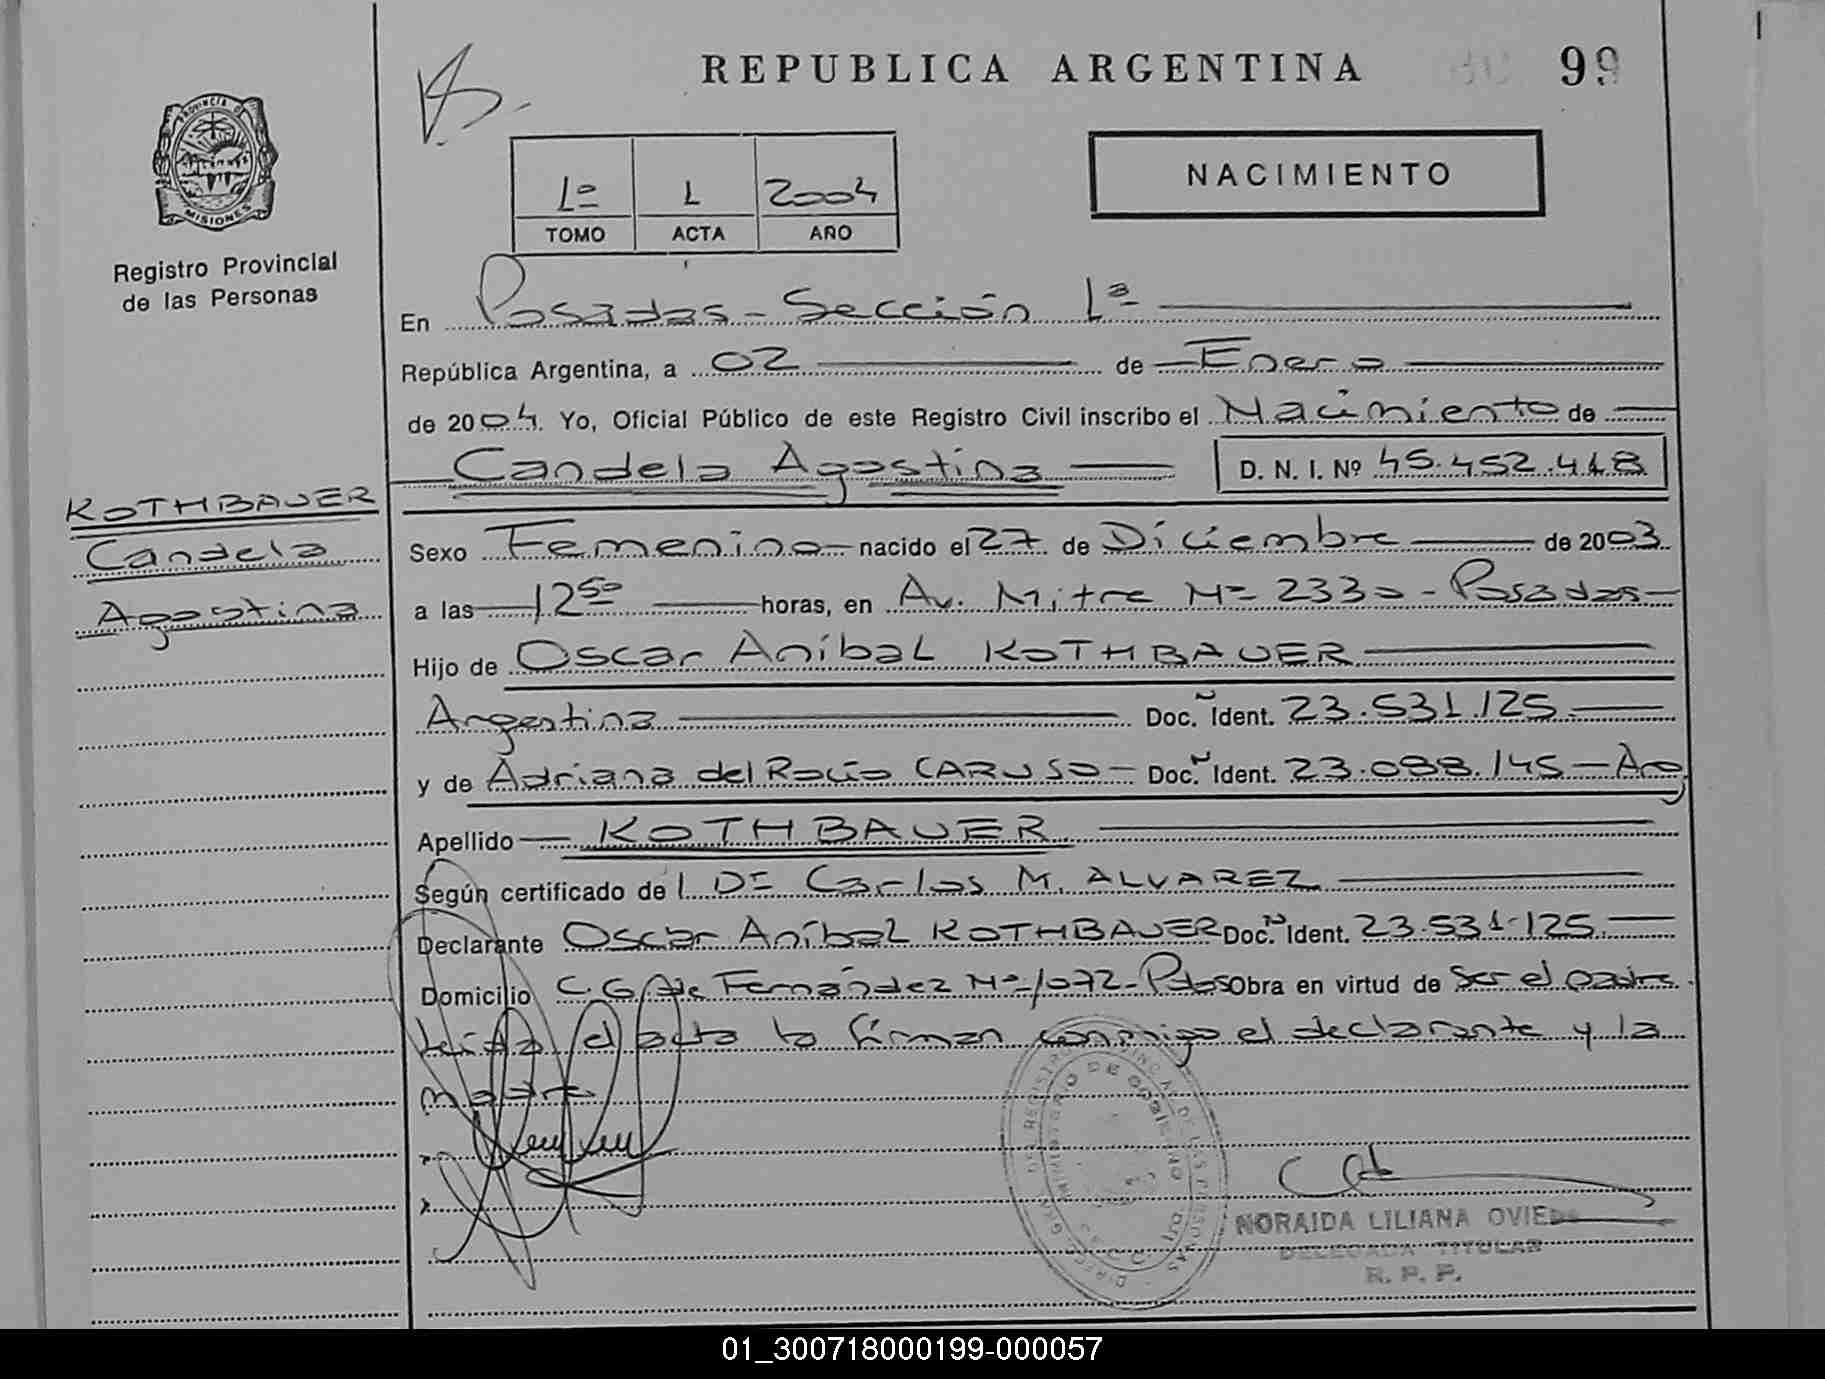 REPUBLICA ARGENTINA
99
PROVINCIA DE
MISIONES
Registro Provincial
de las Personas
1º 1 2004
TOMO ACTA AÑO
NACIMIENTO
En Posadas - Sección 1ª
República Argentina, a 02 de Enero
de 2004. Yo, Oficial Público de este Registro Civil inscribo el Nacimiento de
Candela Agostina D. N. I. Nº 45.452.418
KOTHBAUER
Candela
Agostina
Sexo Femenino nacido el 27 de Diciembre de 2003
a las 12 50 horas, en Av. Mitre Nº 2330 - Posadas
Hijo de Oscar Aníbal KOTHBAUER
Argentina Doc. Ident. 23.531.125
y de Adriana del Rocío CARUSO - Doc. Ident. 23.098.145 - Arg
Apellido KOTHBAUER
Según certificado del Dr Carlos M. ALVAREZ
Declarante Oscar Aníbal KOTHBAUER Doc. Ident. 23.531.125
Domicilio C. G. de Fernández Nº 1072 - Pdas Obra en virtud de ser el padre.
Leída el acta la firman conmigo el declarante y la
madre
NORAIDA LILIANA OVIEDO
DELEGADA TITULAR
R. P. P.
01_300718000199-000057